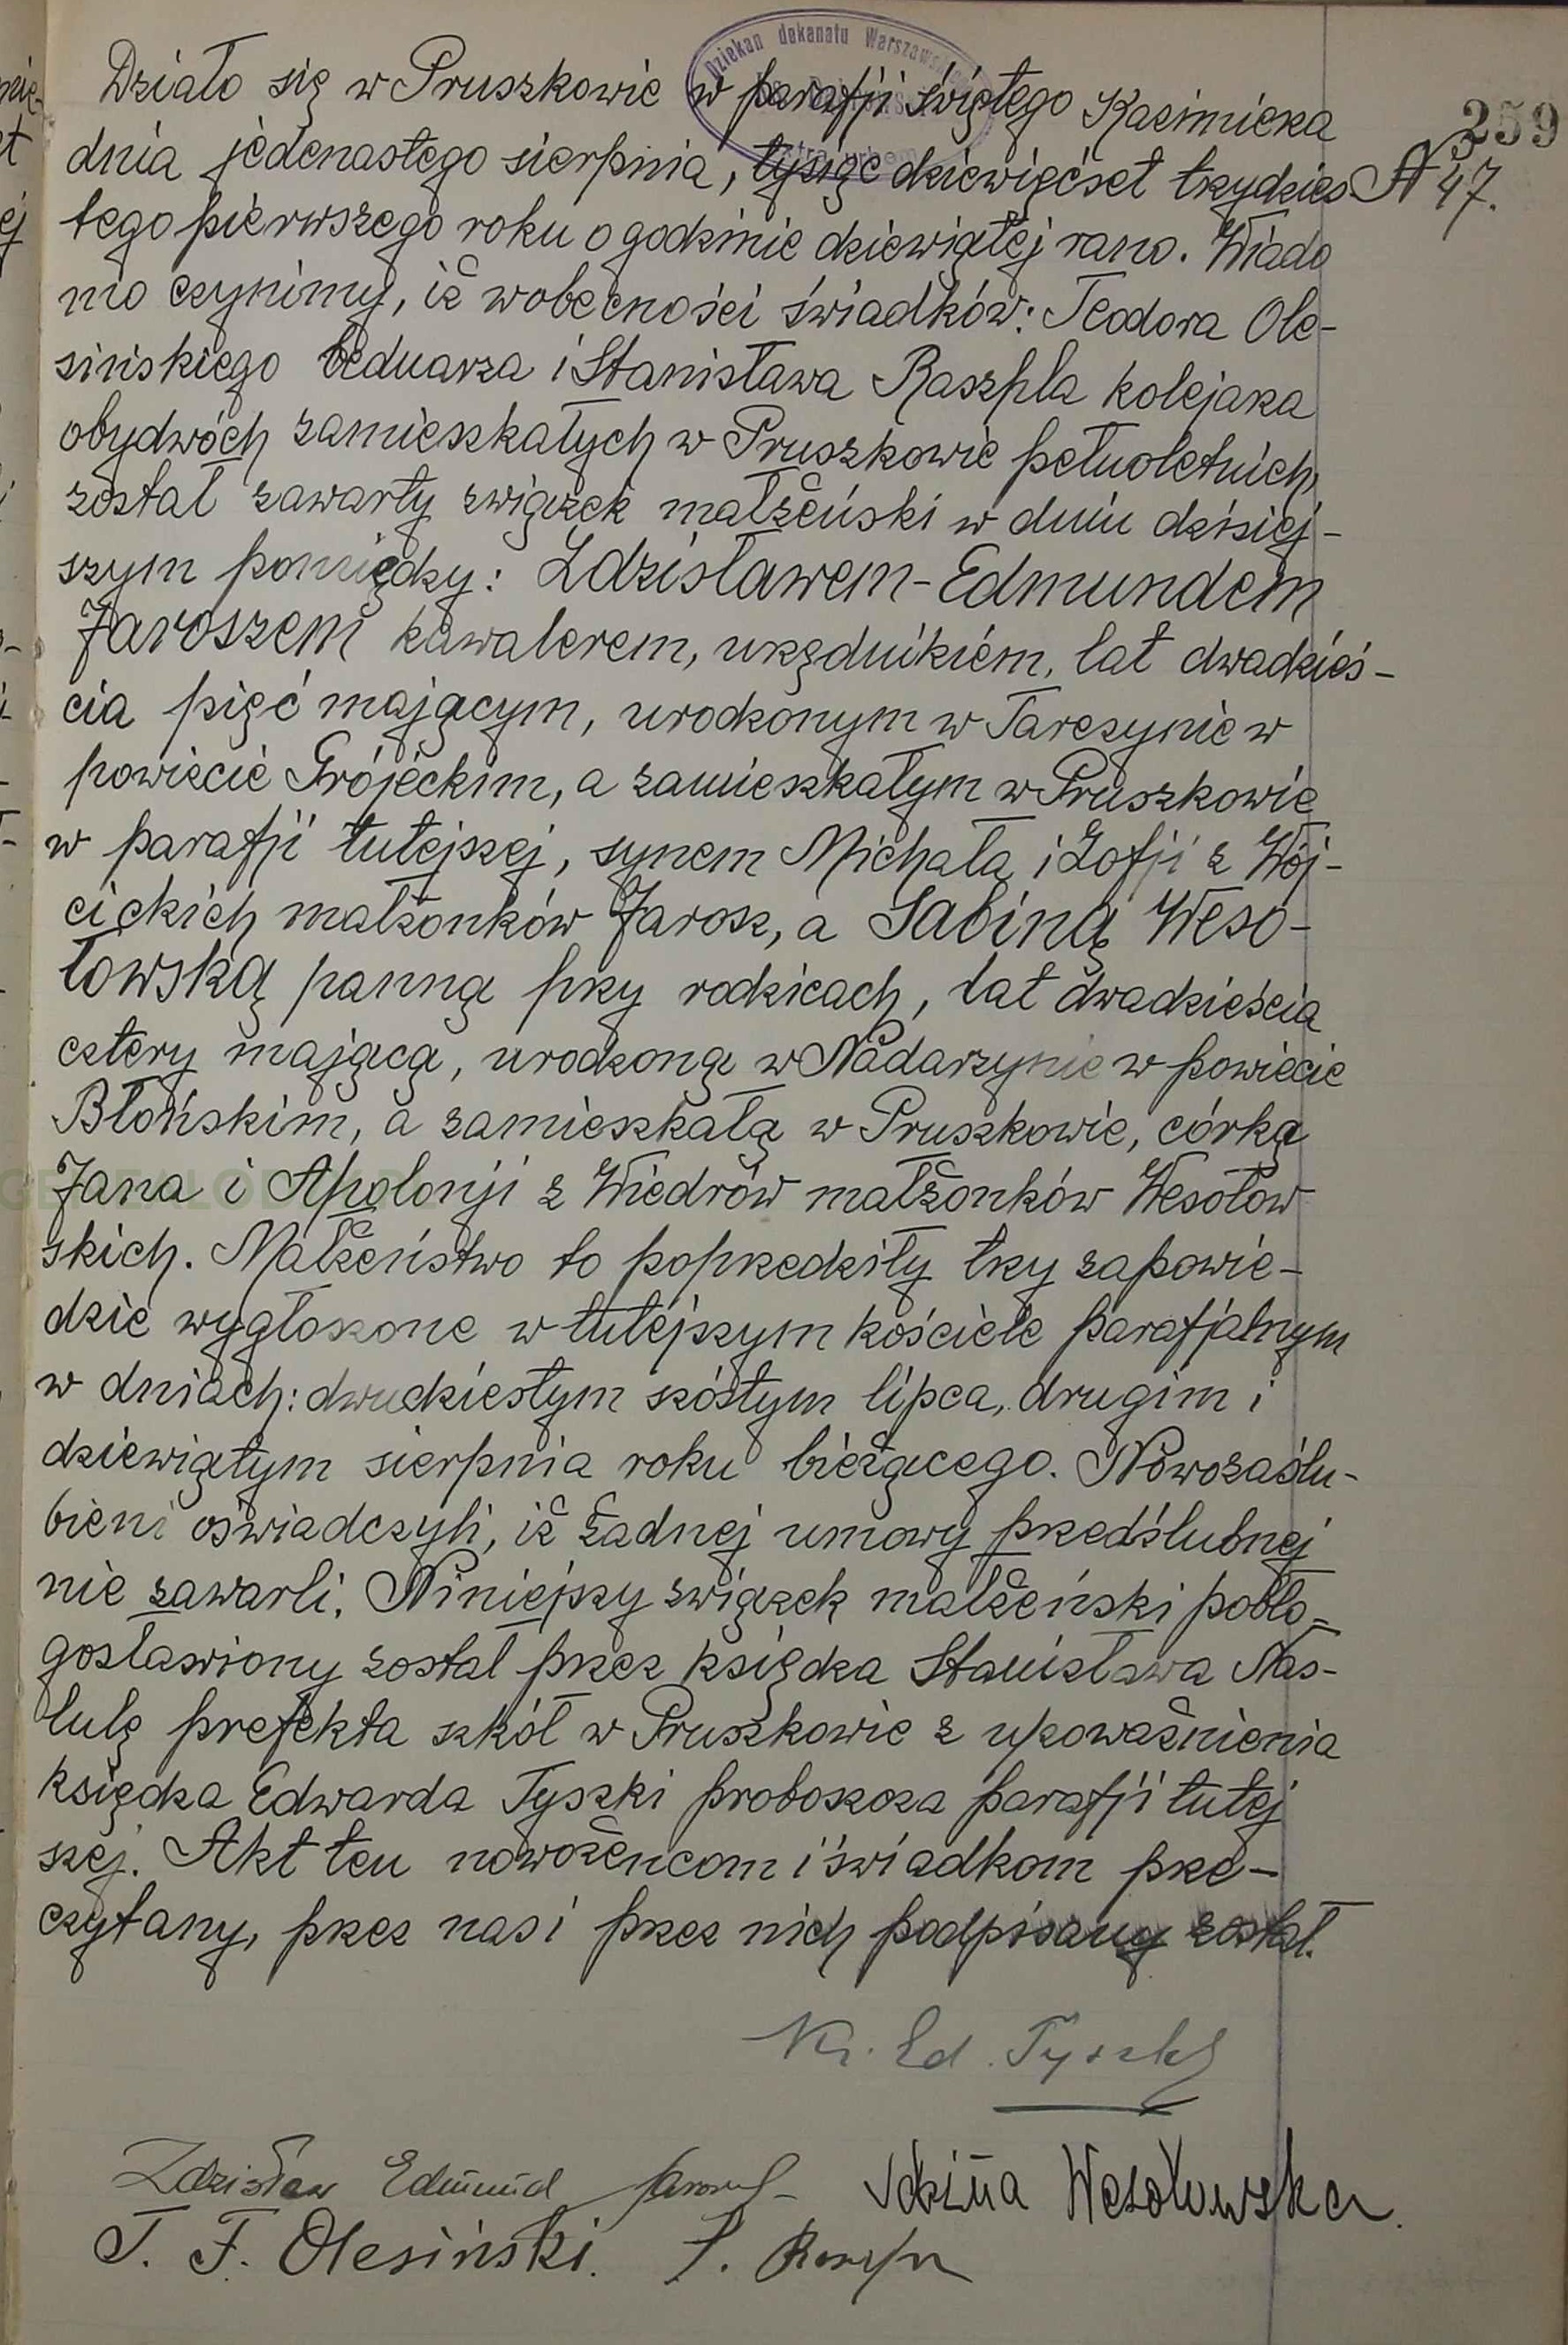 259
№ 47.
Działo się w Pruszkowie w parafji świętego Kazimierza
dnia jedenastego sierpnia, tysiąc dziewięćset trzydzies-
tego pierwszego roku o godzinie dziewiątej rano. Wiado
mo czynimy, iż wobecności świadków: Teodora Ole-
sińskiego bednarza i Stanisława Raszpla kolejarza
obydwóch zamieszkałych w Pruszkowie pełnoletnich,
został zawarty związek małżeński w dniu dzisiej-
szym pomiędzy: Zdzisławem-Edmundem
Jaroszem kawalerem, urzędnikiem, lat dwadzieś-
cia pięć mającym, urodzonym w Tarczynie w
powiecie Grójeckim, a zamieszkałym w Pruszkowie
w parafji tutejszej, synem Michała i Zofji z Wój-
cickich małżonków Jarosz, a Sabiną Weso-
łowską panną przy rodzicach, lat dwadzieścia
cztery mającą, urodzoną w Nadarzynie w powiecie
Błońskim, a zamieszkałą w Pruszkowie, córką
Jana i Apolonji z Wiedrów małżonków Wesołow
skich. Małżeństwo to poprzedziły trzy zapowie-
dzie wygłoszone w tutejszym kościele parafjalnym
w dniach: dwudziestym szóstym lipca, drugim i
dziewiątym sierpnia roku bieżącego. Nowozaślu-
bieni oświadczyli, iż żadnej umowy przedślubnej
nie zawarli. Niniejszy związek małżeński pobło-
gosławiony został przez księdza Stanisława Nas-
lulę prefekta szkół w Pruszkowie z upoważnienia
księdza Edwarda Tyszki proboszcza parafji tutej
szej. Akt ten nowożencom i świadkom prze-
czytany, przez nas i przez nich podpisany został.
Ks. Ed. Tyszka
Zdzisław Edmund Jarosz Sabina Wesołowska.
T. F. Olesiński. S. Raszpla
Dziekan dekanatu Warszaws